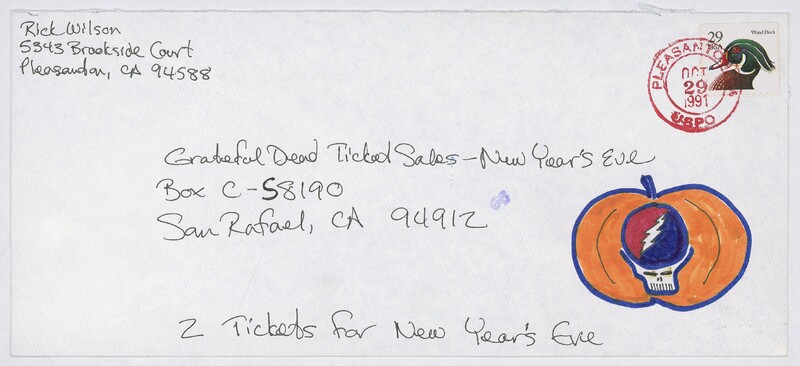 Rick Wilson
5343 Brookside Court
Pleasanton, CA 94588
29
USA
Wood Duck
PLEASANTO
OCT
29
1991
USPO
Grateful Dead Ticket Sales - New Year's Eve
Box C-S8190
San Rafael, CA 94912
2 Tickets for New Year's Eve